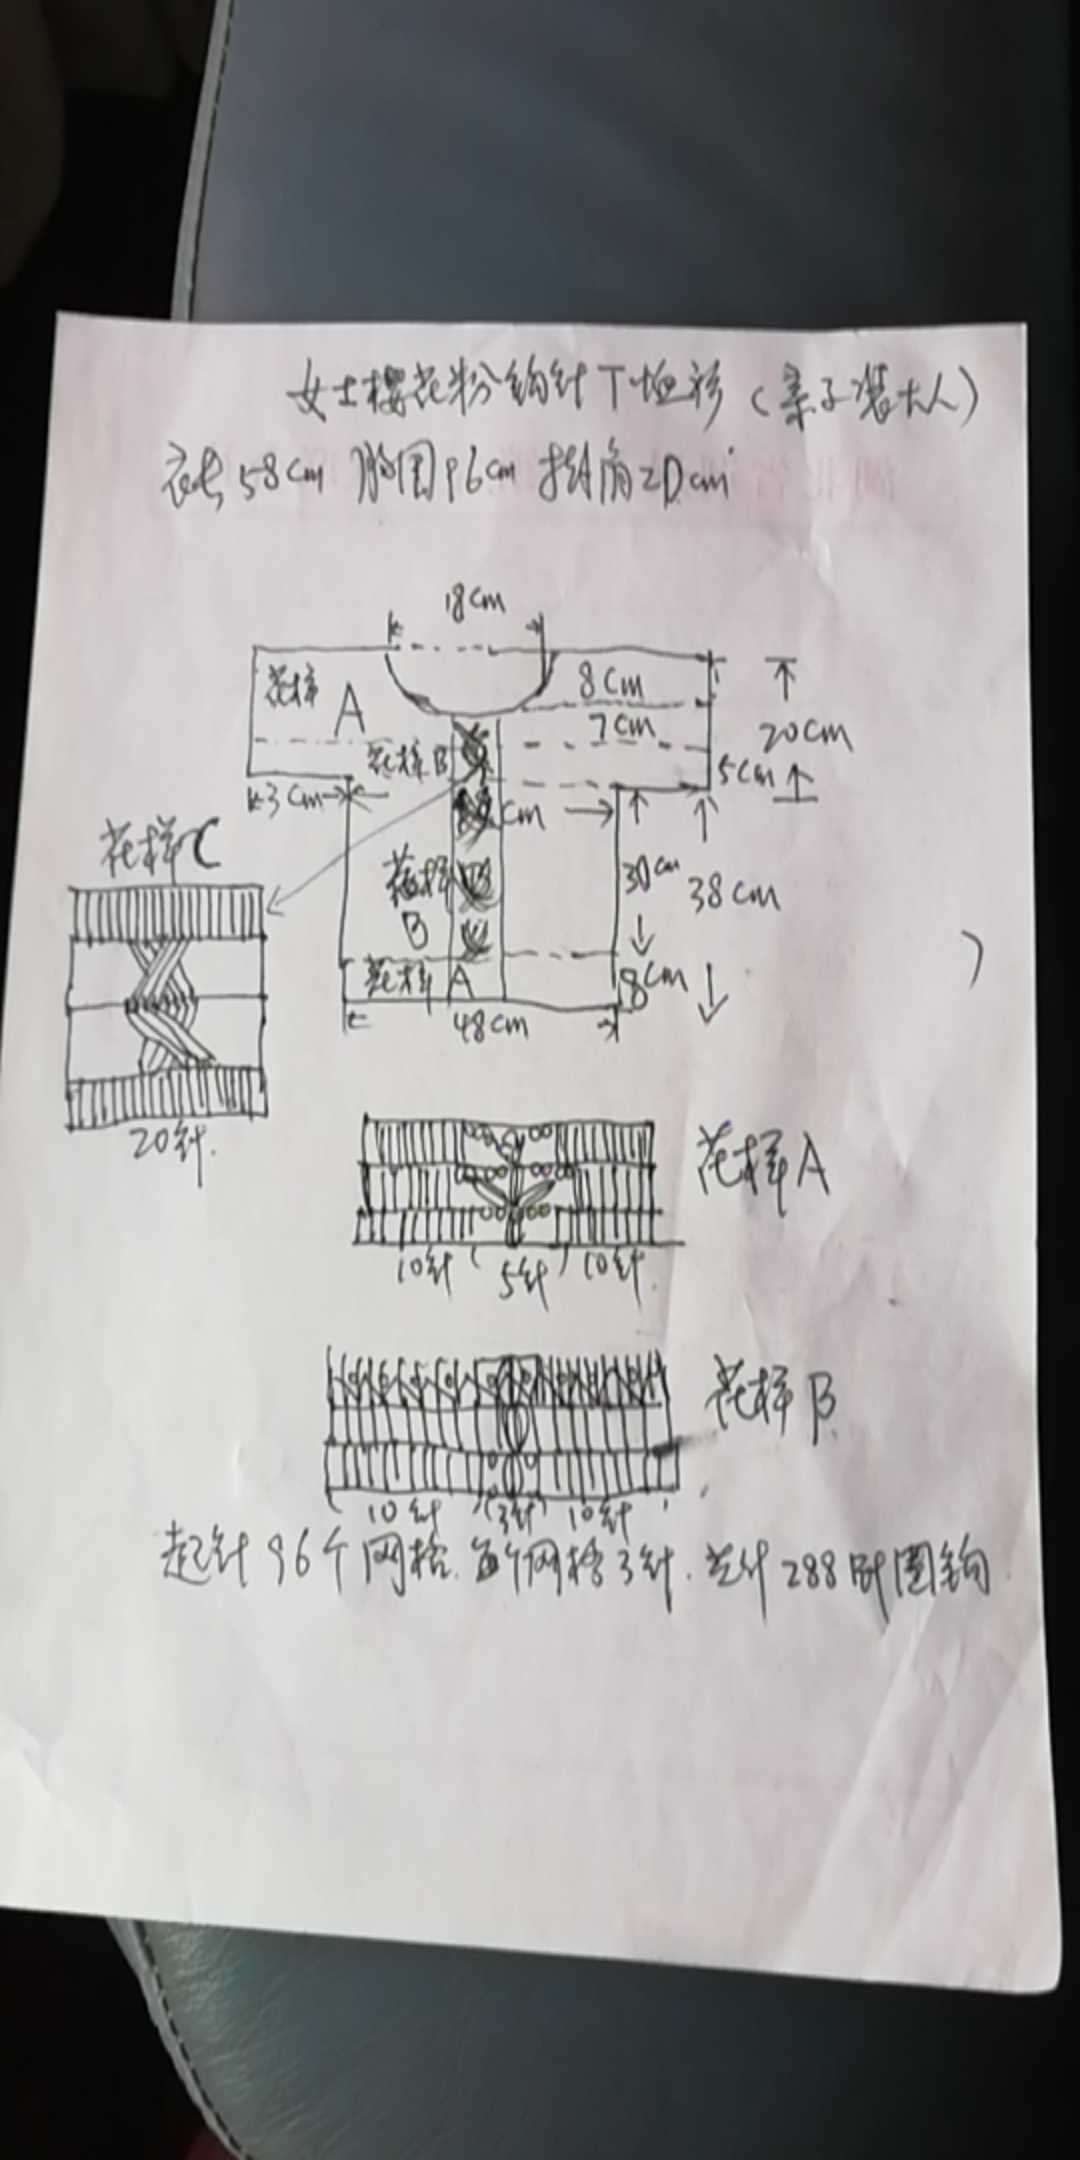 女士樱花粉钩针T恤衫（亲子装大人）
衣长58cm 胸围96cm 挂肩20cm
18cm
花样 A
8cm
7cm
20cm
花样B
5cm
3cm
cm
花样C
花样
B
30cm
38cm
花样A
8cm
48cm
20针.
花样A
10针 5针 10针
花样B
10针 3针 10针
起针96个网格.每个网格3针.共计288针圈钩